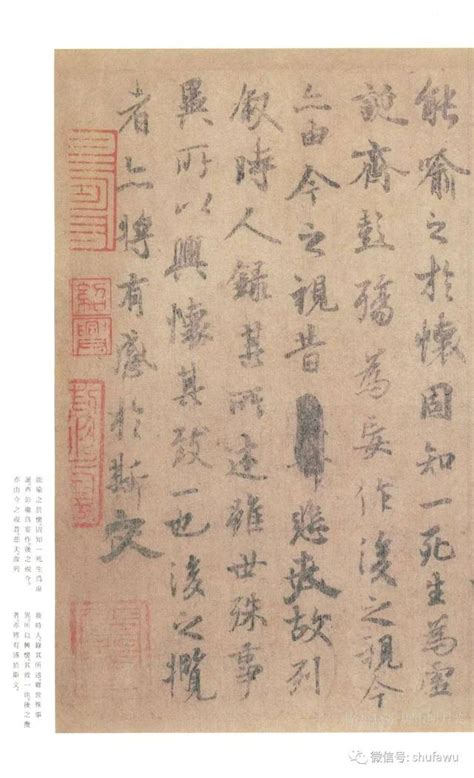 能喻之於懷固知一死生為虛
誕齊彭殤為妄作後之視今
亦由今之視昔悲夫故列
敘時人錄其所述雖世殊事
異所以興懷其致一也後之攬
者亦將有感於斯文
紹興
能喻之於懷固知一死生爲虛
誕齊彭殤爲妄作後之視今。
亦由今之視昔悲夫故列
敘時人錄其所述雖世殊事
異所以興懷其致一也後之攬
者亦將有感於斯文。
微信号: shufawu